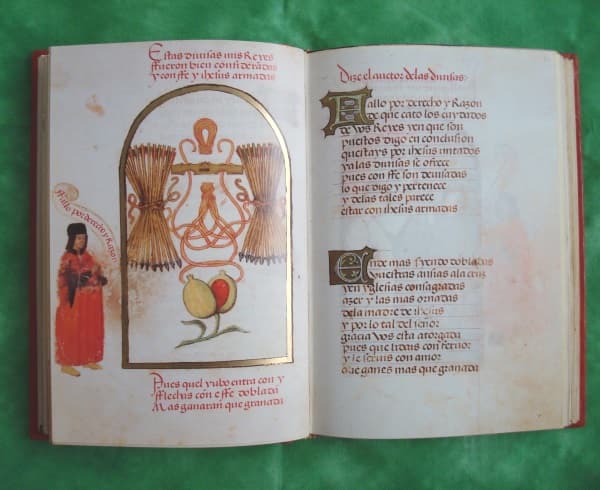 Estas diuisas mis Reyes
ffueron bien consideradas
y con ffe y ihesus armadas
ffallo por derecho y Razon
Pues quel yubo entra con y
fflechas con effe doblada
Mas ganaran que granada
Dize el auctor delas diuisas
Fallo por derecho y Razon
de que cato los cuydados
de vos Reyes y en que son
puestos digo en conclusion
questays por ihesus untados
ya las diuisas se ofrece
pues con ffe son deuisadas
lo que digo y pertenece
y delas tales parece
estar con ihesus armadas
Ende mas syendo doblados
vuestras ansias ala cruz
y en yglesias consagradas
azer y las mas ornadas
dela madre de ihesus
y por lo tal del señor
gracia vos esta otorgada
pues que lidiais con feruor
y le seruis con amor
que ganes mas que granada